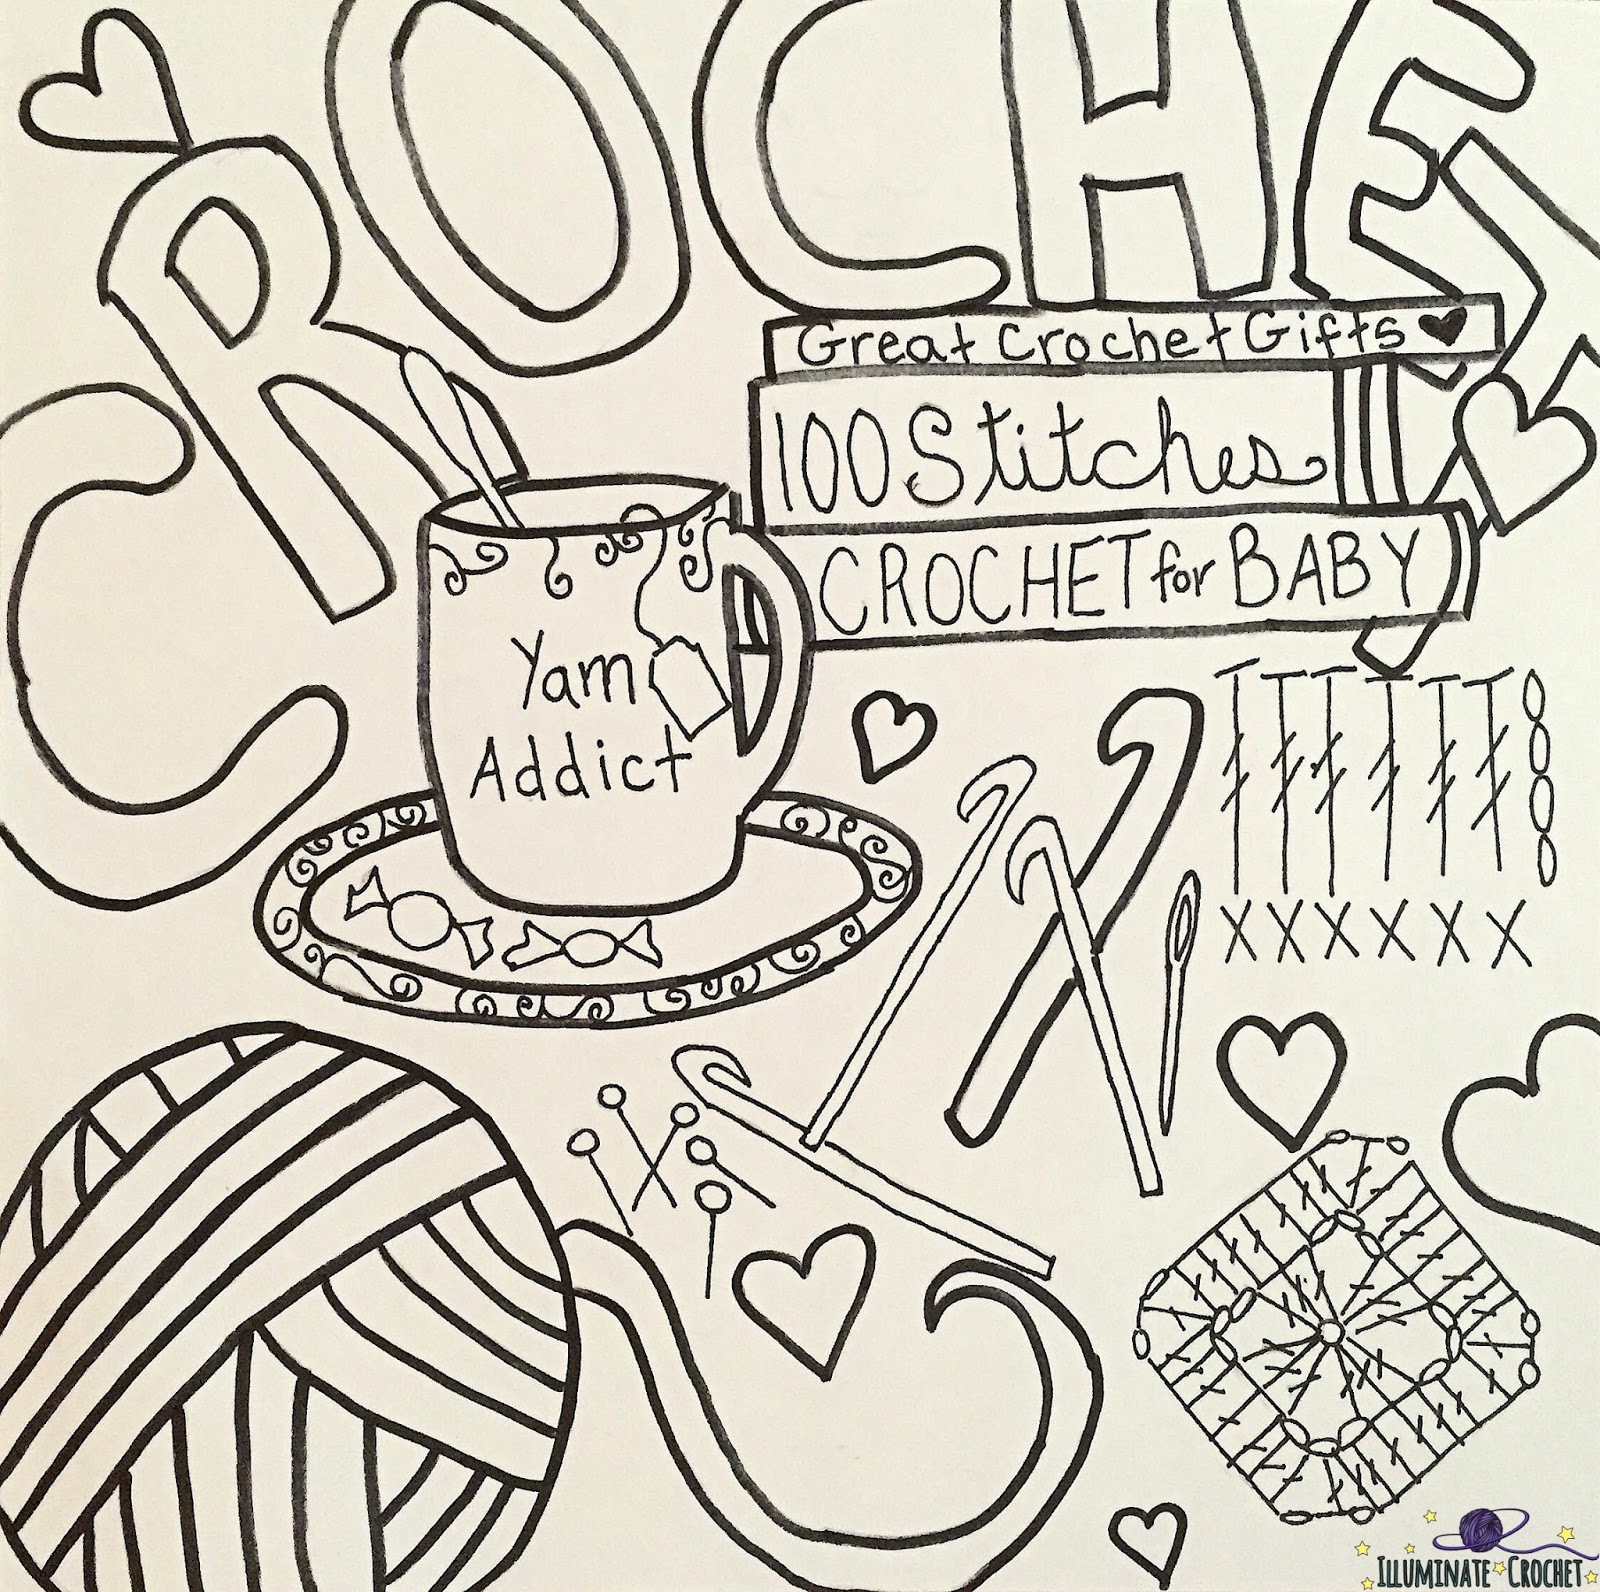 CROCHET
Great Crochet Gifts
100 Stitches
CROCHET for BABY
Yarn
Addict
ILLUMINATE CROCHET